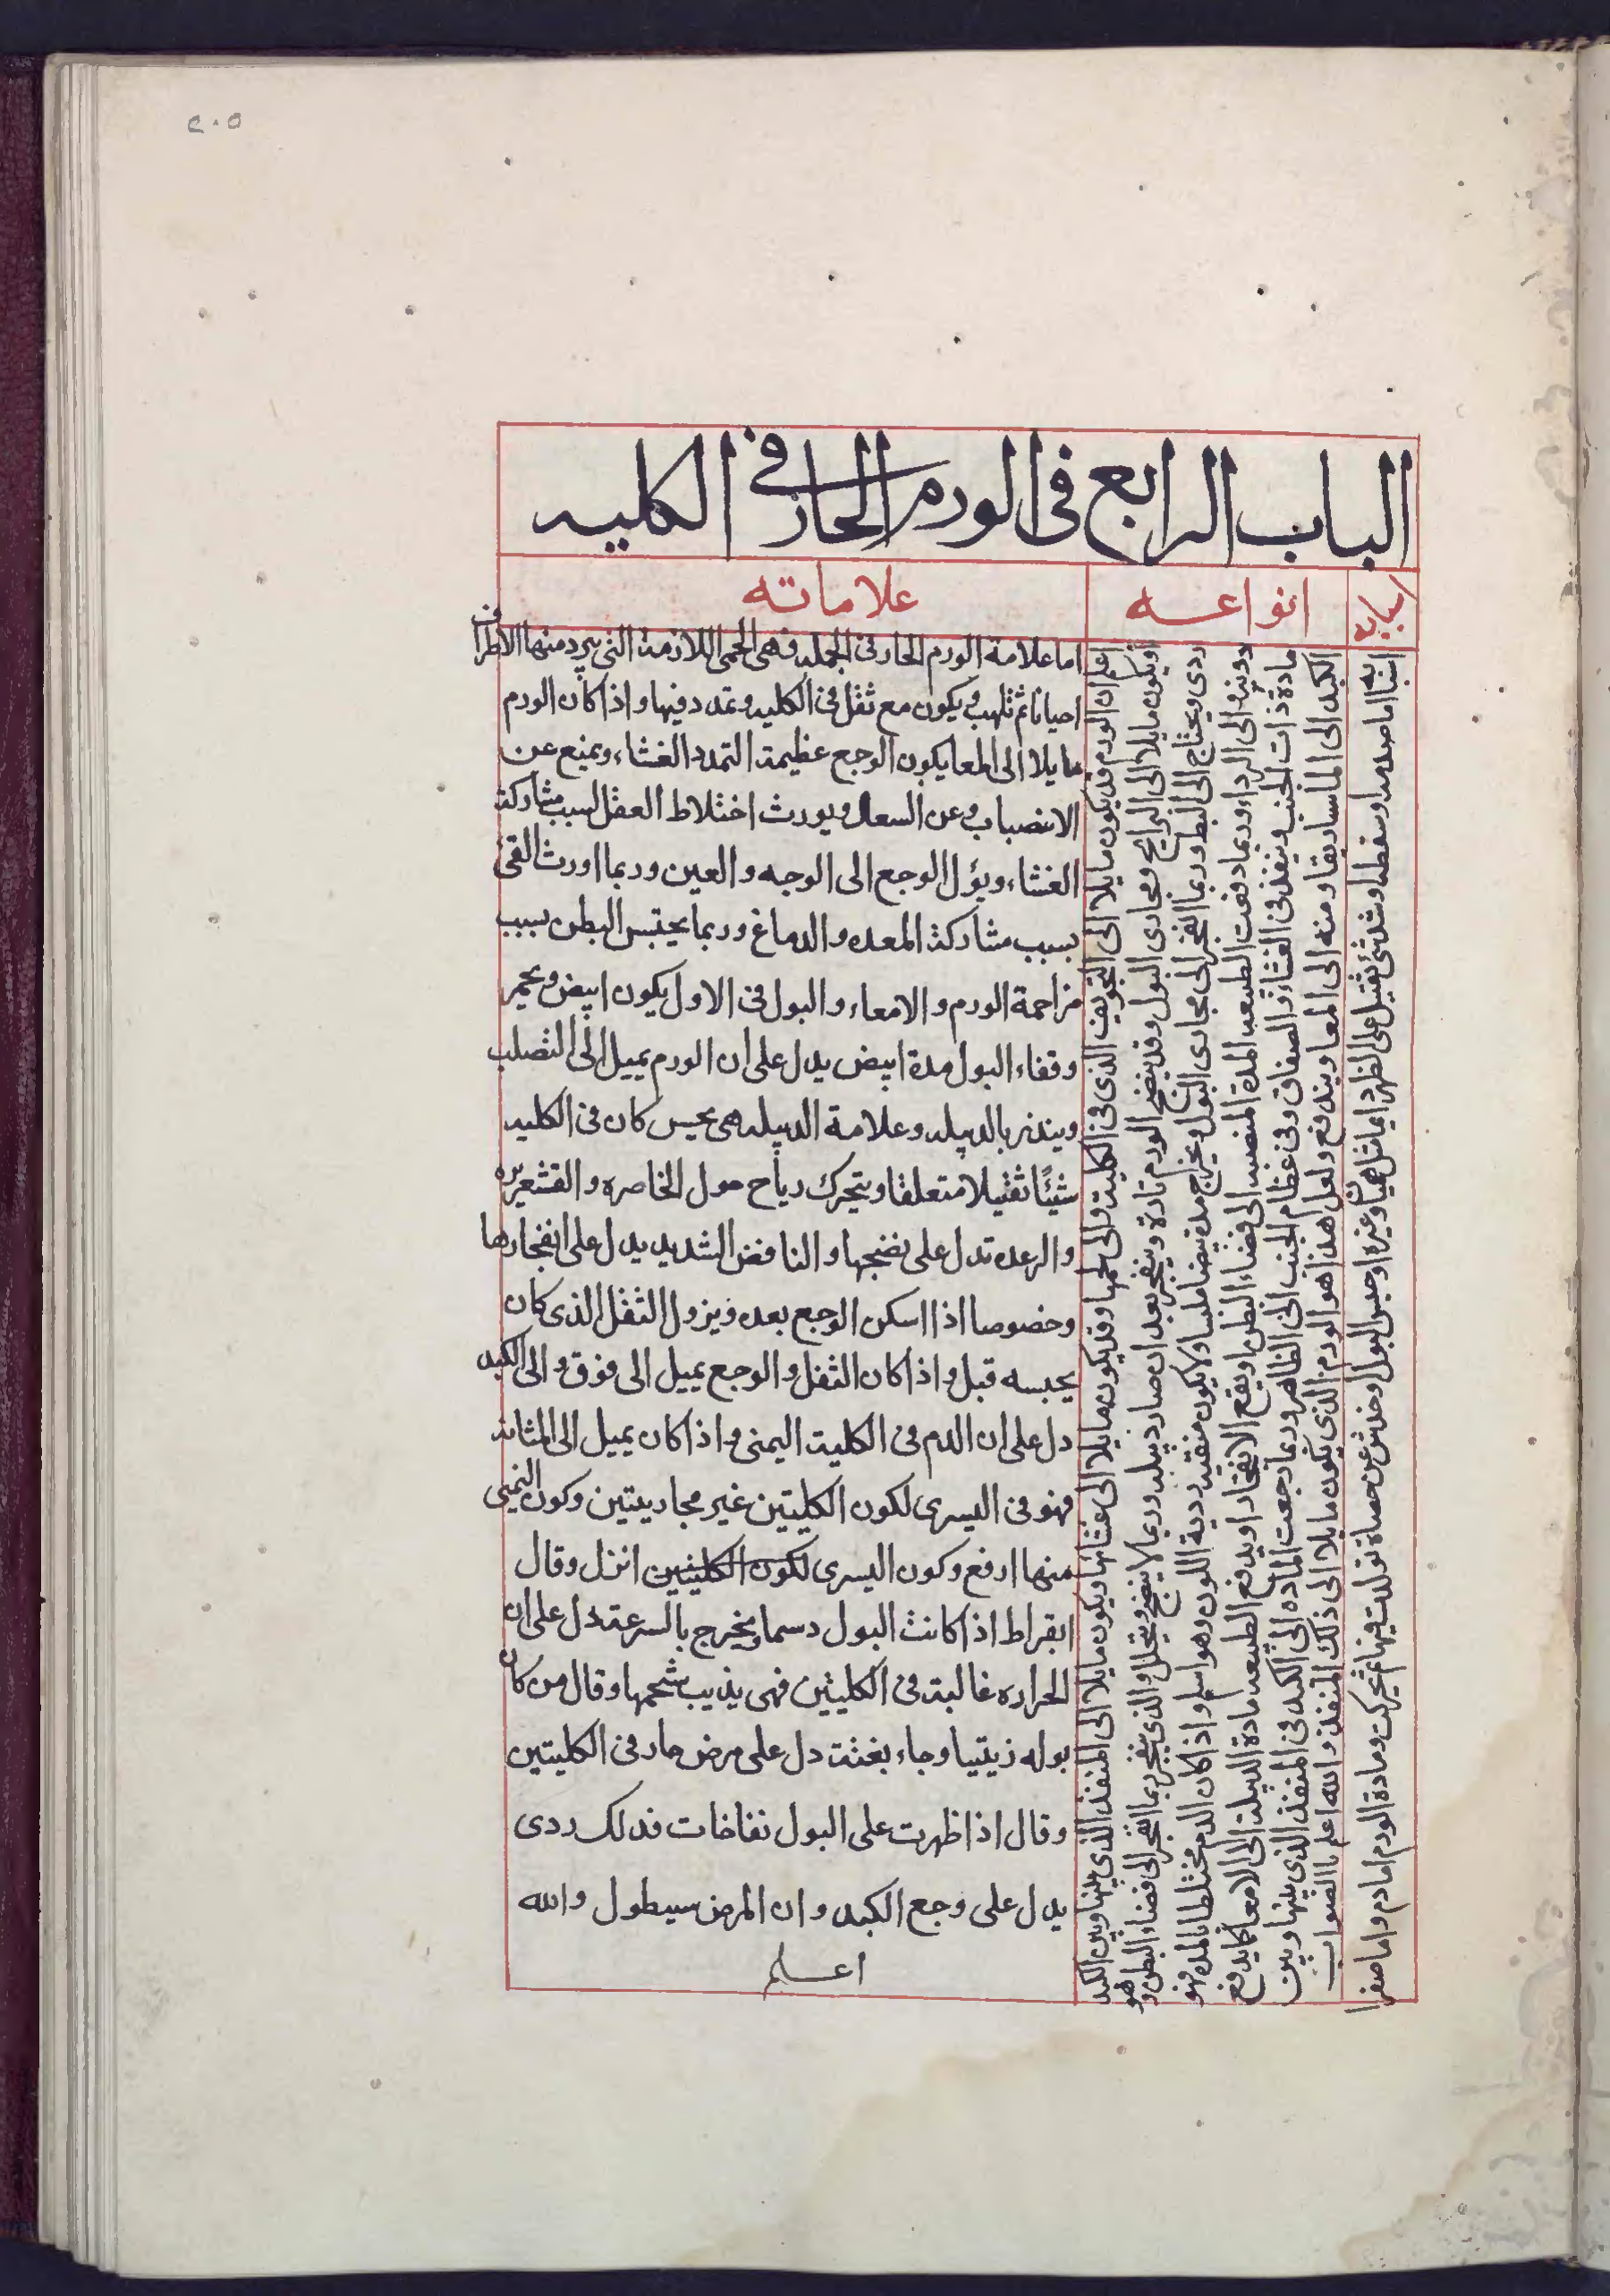 ٢٠٥
الباب الرابع فى الورم الحار فى الكليه
اسبابه
انواعه
علاماته
اسبابه اما صدمه او سقطه او شد شئ ثقيل على الظهر دايما مثل هميان وغيره او حبس البول او خدش عن حصاة تولدت فيها ثم تحركت ومادة الورم اما دم واما صفرا
اعلم ان الورم قد يكون مايلا الى التجويف الذى فى الكلية والى لحمها وقد يكون مايلا الى غشائها ويكون مايلا الى المنفذ الذى بينها وبين الكبد
او يكون مايلا الى البرابخ ومجارى البول وقد ينضج الورم تارة وينفجر بعد ان صار دبيله وربما لا ينضج ويتحلل والذى ينفجر ربما انفجر الى فضاء البطن وهو
ردى ويحتاج الى البط وربما انفجر الى مجارى البول ويخرج مدة بيضا ملسا ولا يكون منتنه ردية اللون وهو اسلم واذا كان الدم مختلطا بالمده فهو
دونه والى الرداءه وربما دفعت الطبيعه المدة المنصبه الى فضاء البطن او يقع الانفجار او يدفع الطبيعه مادة الدبيلة الى الامعا كما يدفع
مادة ذات الجنب وينفذ فى الغشاء والصفاق وفى عظام الجنب الى الظاهر وربما رجعت الماده الى الكبد فى المنفذ الذى بينها وبين
الكبد الى الماساريقا ومنه الى المعا ويندفع ولعل هذا هو الورم الذى يكون مايلا الى ذلك المنفذ والله اعلم باالصواب
اما علامة الورم الحار فى الجمله فهى الحمى اللازمة التى يبرد منها الاطراف
احيانا ثم تلهب ويكون مع ثقل فى الكليه وتمدد فيها واذا كان الورم
مايلا الى المعا يكون الوجع عظيمة التمدد الغشاء ويمنع عن
الانتصباب وعن السعال ويورث اختلاط العقل لسبب مشاركة
الغشاء ويؤل الوجع الى الوجه والعين وربما اورث القئ
بسبب مشاركة المعده والدماغ وربما يحتبس البطن سبب
مزاحمة الورم والامعاء والبول فى الاول يكون ابيض ويحمر
وقفاء البول مدة ابيض يدل على ان الورم يميل الى التصلب
ويندر بالدبيله وعلامة الدبيله هى يحس كان فى الكليه
شيئًا ثقيلا متعلقا ويتحرك رياح حول الخاصره والقشعريره
والرعده تدل على نضجها والنافض الشديد يدل على انفجارها
وخصوصا اذا اسكن الوجع بعده ويزول الثقل الذى كان
يحبسه قبل واذا كان الثقل والوجع يميل الى فوق والى الكبد
دل على ان الدم فى الكلية اليمنى واذا كان يميل الى المثانه
فهو فى اليسرى لكون الكليتين غير محاديتين وكون اليمنى
منها ارفع وكون اليسرى لكون الكليتين انزل وقال
ابقراط اذا كانت البول دسما ويخرج بالسرعة دل على ان
الحراره غالبة فى الكليتين فهى يذيب شحمها وقال من كان
بوله زيتيا وجاء بغتة دل على مرض حار فى الكليتين
وقال اذا ظهرت على البول نفاخات فدلك ردى
يدل على وجع الكبد وان المرض سيطول والله
اعلم